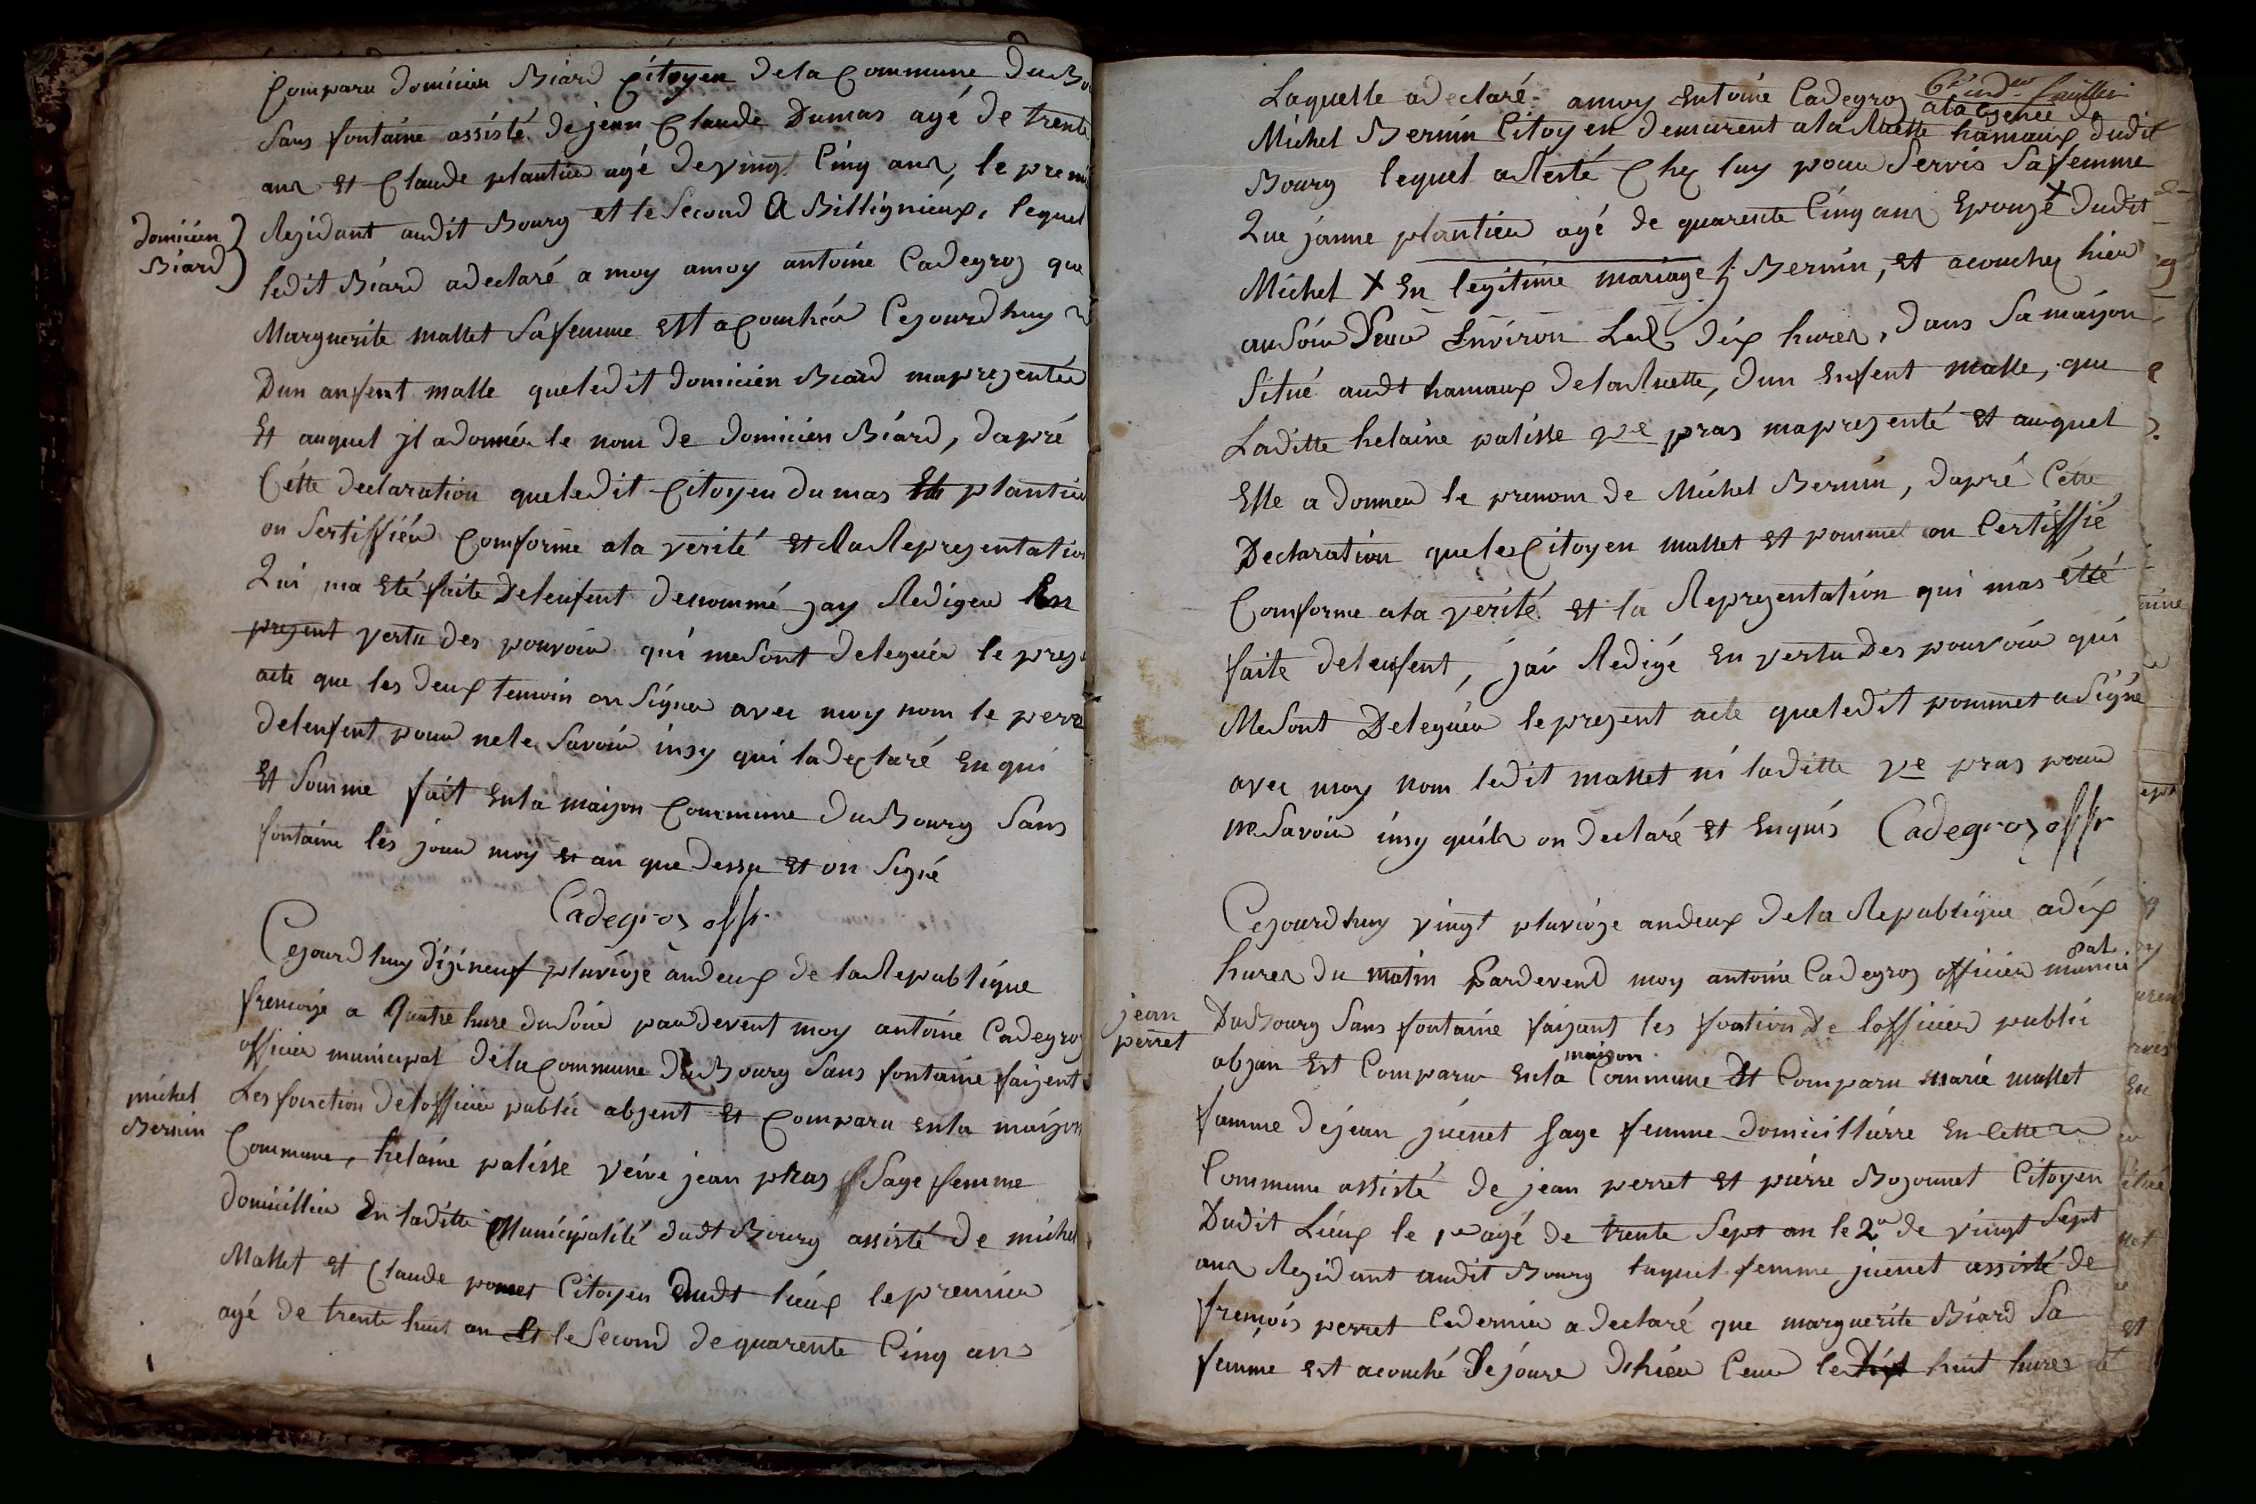 Comparu domicien Biard Citoyen dela Commune du Bo
Sans fontaine assisté dejean Claude Dumas agé de trente
ans et Claude plantier agé deving Cinq ans, le premi
Rezidant audit Bourg et le Second a Billignieux, lequel
domicien
Biard
ledit Biard adeclaré a moy amoy antoine Cadegroz que
Marguerite mallet Safemme est acouchéz Cejourdhuy
Dun anfent malle queledit domicien Biard maprezentéz
Et auquel jl adonnéz le nom de domicien Biard, dapré
Cétte declaration queledit Citoyen dumas Et plantier
on Sertiffiéz Comforme ala verité et la Reprezentation
Qui ma Eté faite Delenfent denommé jay Redigez En
prezent vertu des pouvoir qui mesont deleguéz le preze
acte que les deux temoin on Signez avec moy nom le perre
delenfent pour nele Savoir insy qui ladeclaré Enqui
Et Somme fait Enla maizon Commune duBourg Sans
fontaine les jour moy et an que dessu et on Signé
Cadegroz offr.
Cejourdhuy dizineuf pluvioze andeux de laRepublique
frençoize a quatre hure duSoir pardevent moy antoine Cadegroz
officier municipal delaCommune duBourg Sans fontaine faizent
michel
Bernin
Les fonction delofficier public abzent Et Comparu enla maizon
Commune, helaine palisse veive jean pras Sage femme
domicillier En laditte Municipalité dudt Bourg assisté De michel
Mallet et Claude pomet Citoyen dudt lieux le premier
agé de trente huit an Et leSecond de quarente Cinq ans
Laquelle adeclaré amoy Entoine Cadegroz
Michel Bernin Citoyen demurent ala Ruette hamaux dudit
Bourg lequel aResté Chez luy pour Servir Safemme
Que janne plantier agé de quarente Cinq ans Epouzé X dudit
Michel X En legitime mariage Bernin, et acouchez hier
auSoir Sur Environ Les dix hures, dans Sa maizon
Situé audt hamaux delaRuette, dun Enfent malle, que
Laditte helaine palisse ve pras maprezenté et auquel
Elle a donnez le prenom de Michel Bernin, dapré Cette
Declaration queleCitoyen mallet et pommet on Certiffié
Comforme ala verité et la Reprezentation qui mas étté
faite delenfent, jai Redigé En vertu Des pouvoir qui
Mesont Deleguéz leprezent acte queledit pommet aSigné
avec moy nom ledit mallet ni laditte ve pras pour
neSavoir insy quils on declaré et Enquis Cadegroz offr
Cejourdhuy vingt pluvioze andeux dela Republique adix
hures du matin Pardevend moy antoine Cadegroz officier munici
pal
jean
perret
DuBourg Sans fontaine faizant les fontion De lofficier public
abzan Est Comparu Enla maizon Commune Et Comparu marie mallet
famme dejean juenet Sage femme domicillierre En Cette
Commune assisté de jean perret et pierre Bozonnet Citoyen
Dudit Lieux le 1er agé de trente Sept an le 2e de vingt Sept
ans Rezidant audit Bourg laquel femme juenet assisté de
françois perret Cedernier a declaré que marguerite Biard Sa
femme est acouché Dejoure Dhier leuu le dix huit hures